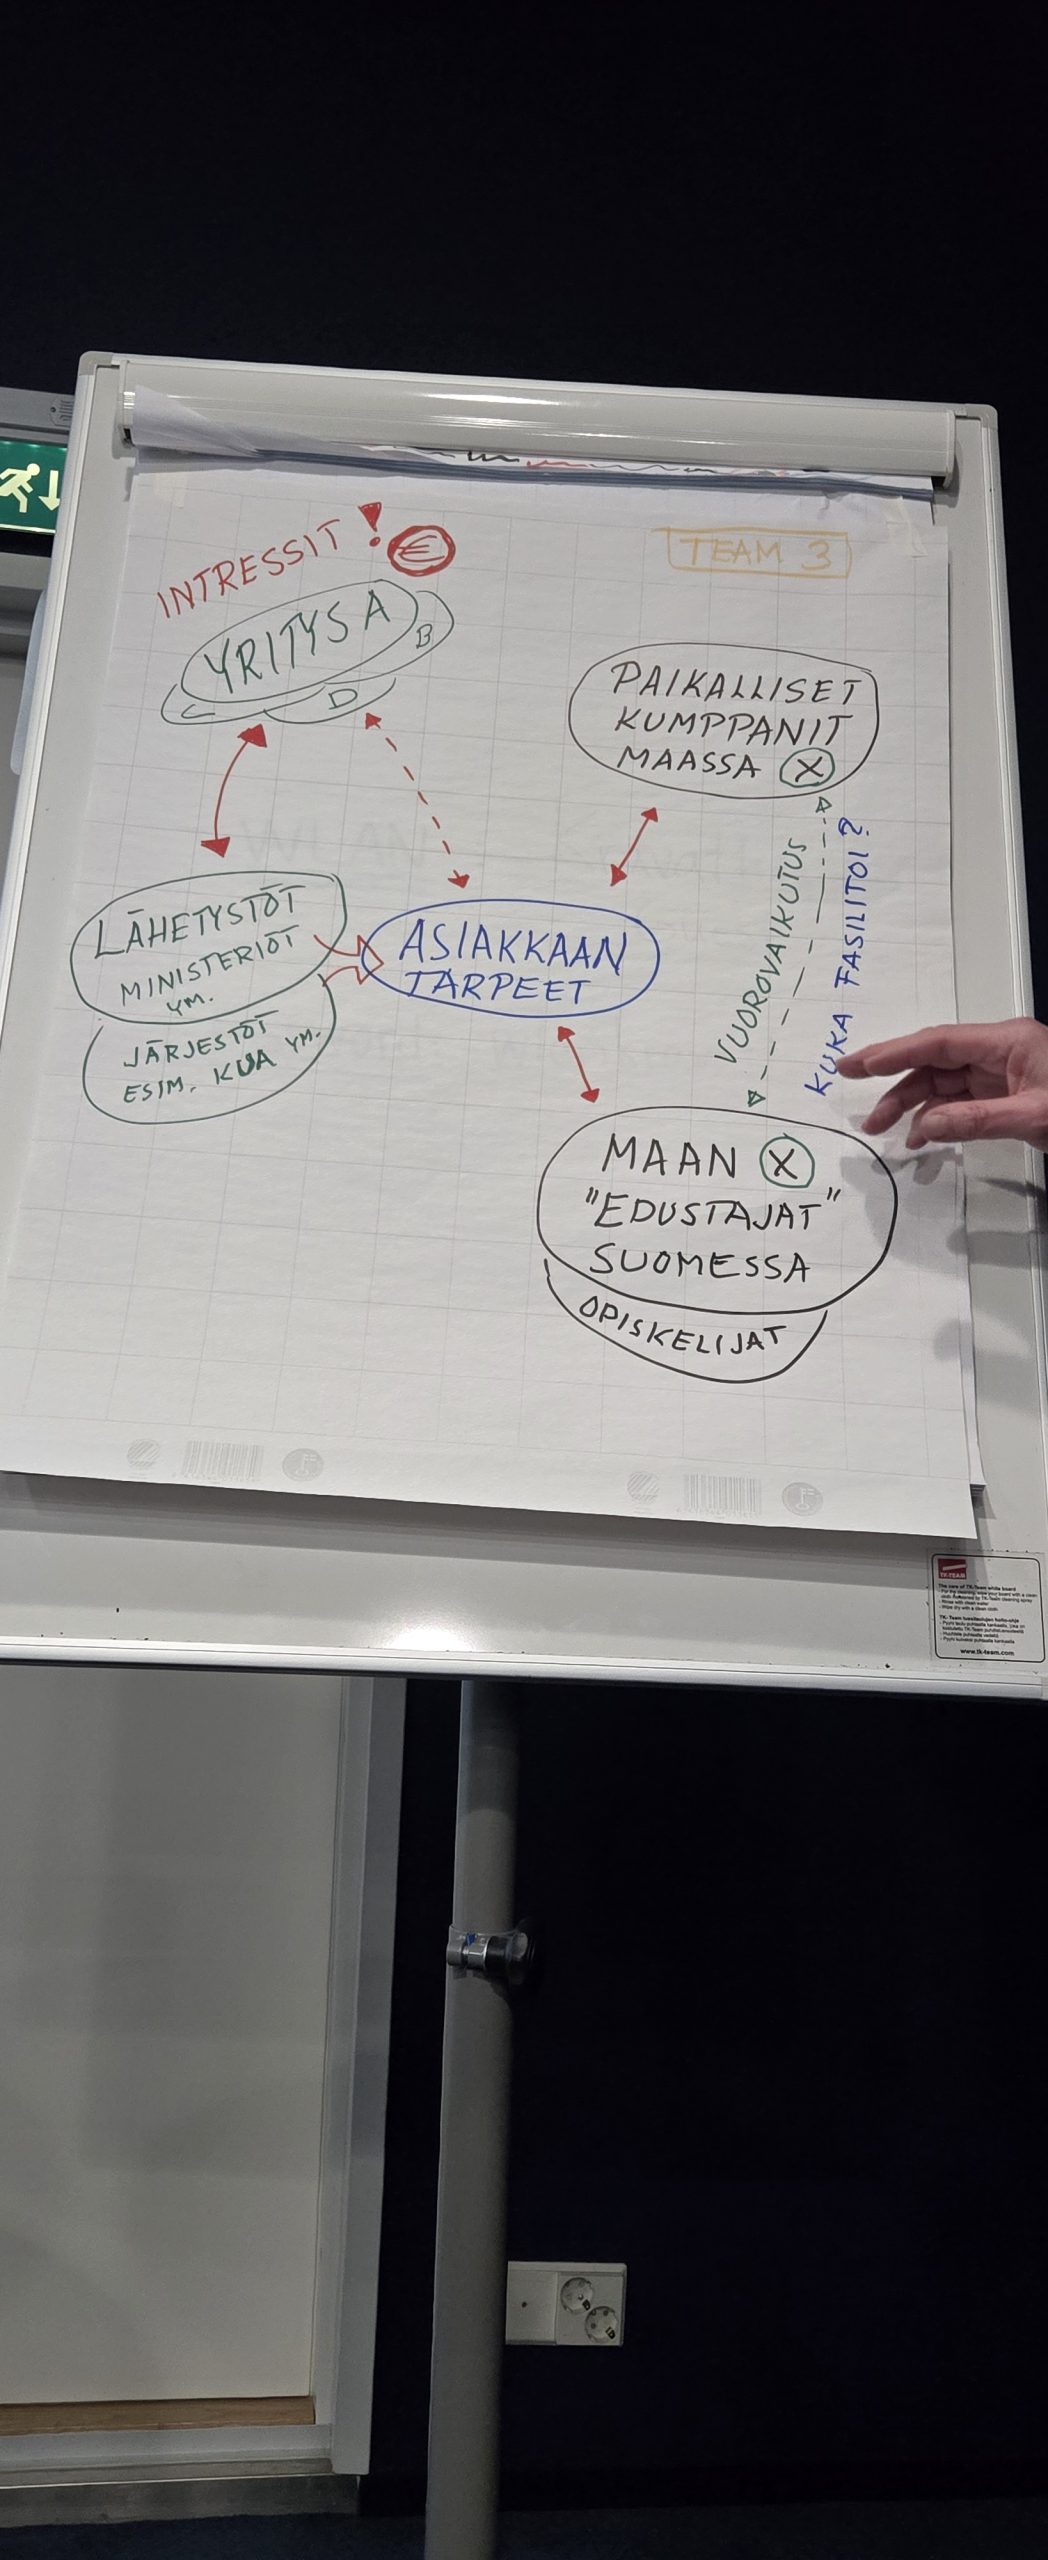 INTRESSIT ! €
TEAM 3
YRITYS A
B
C
D
PAIKALLISET
KUMPPANIT
MAASSA X
VUOROVAIKUTUS
KUKA FASILITOI?
LÄHETYSTÖT
MINISTERIÖT
YM.
JÄRJESTÖT
ESIM. KUA YM.
ASIAKKAAN
TARPEET
MAAN X
"EDUSTAJAT"
SUOMESSA
OPISKELIJAT
TK-TEAM
The care of TK-Team white board
www.tk-team.com